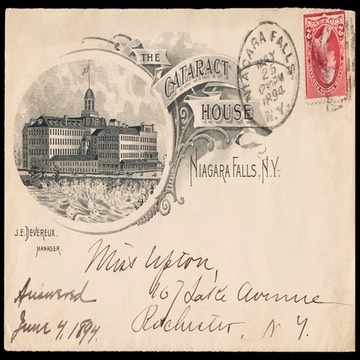 THE
CATARACT
HOUSE
NIAGARA FALLS, N.Y.
NIAGARA FALLS
MAY
25
1894
N.Y.
J.E. DEVEREUX.
MANAGER.
Miss Upton,
167 Lake Avenue
Rochester, N.Y.
Answered
June 4, 1894.